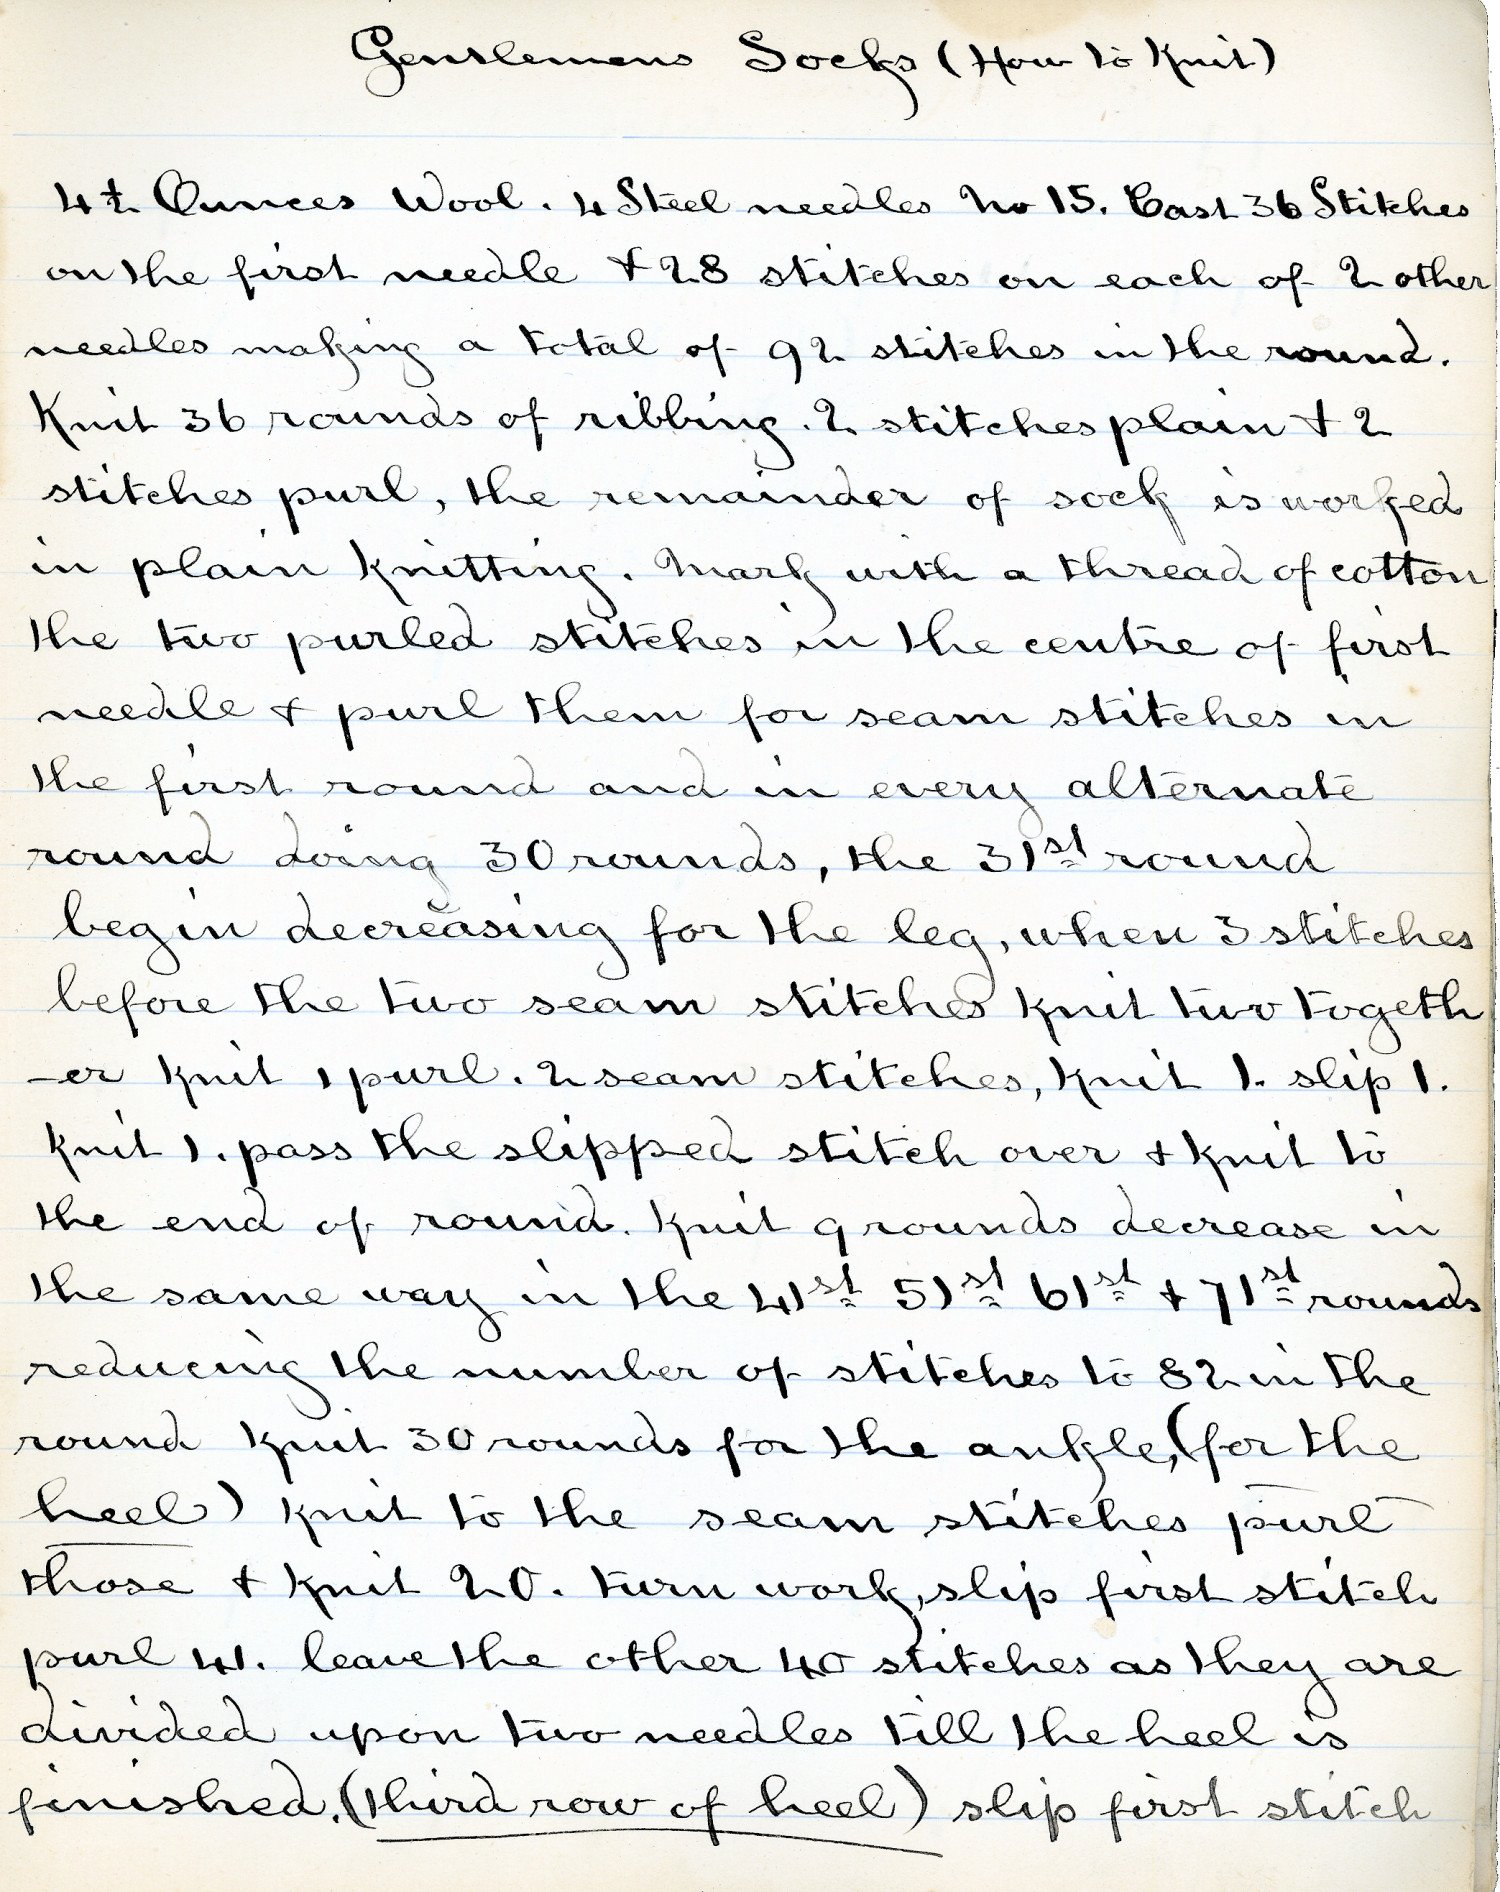 Gentlemens Socks (How to Knit)
4½ Ounces Wool. 4 Steel needles No 15. Cast 36 Stitches
on the first needle & 28 stitches on each of 2 other
needles making a total of 92 stitches in the round.
Knit 36 rounds of ribbing. 2 stitches plain & 2
stitches purl, the remainder of sock is worked
in plain knitting. Mark with a thread of cotton
the two purled stitches in the centre of first
needle & purl them for seam stitches in
the first round and in every alternate
round doing 30 rounds, the 31st round
begin decreasing for the leg, when 3 stitches
before the two seam stitches knit two togeth
-er knit 1 purl. 2 seam stitches, knit 1. slip 1.
knit 1. pass the slipped stitch over & knit to
the end of round. Knit 9 rounds decrease in
the same way in the 41st 51st 61st & 71st rounds
reducing the number of stitches to 82 in the
round Knit 30 rounds for the ankle, (for the
heel) knit to the seam stitches purl
those & knit 20. turn work, slip first stitch
purl 41. leave the other 40 stitches as they are
divided upon two needles till the heel is
finished. (third row of heel) slip first stitch